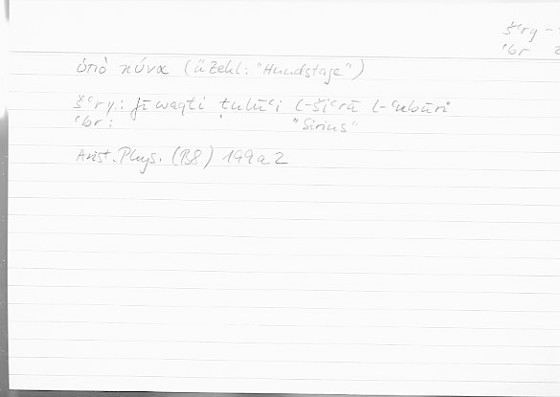 šʿry -
ʿbr
ὑπὸ κύνα (ü Zekl: "Hundstage")
šʿry: fī waqti ṭulūʿi l-šiʿrā l-ʿubūri
ʿbr: "Sirius"
Arist. Phys. (B8) 199a2